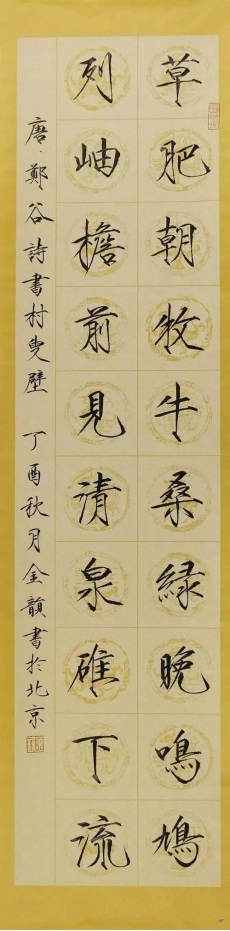 草肥朝牧牛桑緑晚鳴鳩
列岫檐前見清泉礁下流
唐·鄭谷詩書村叟壁 丁酉秋月金韻書於北京